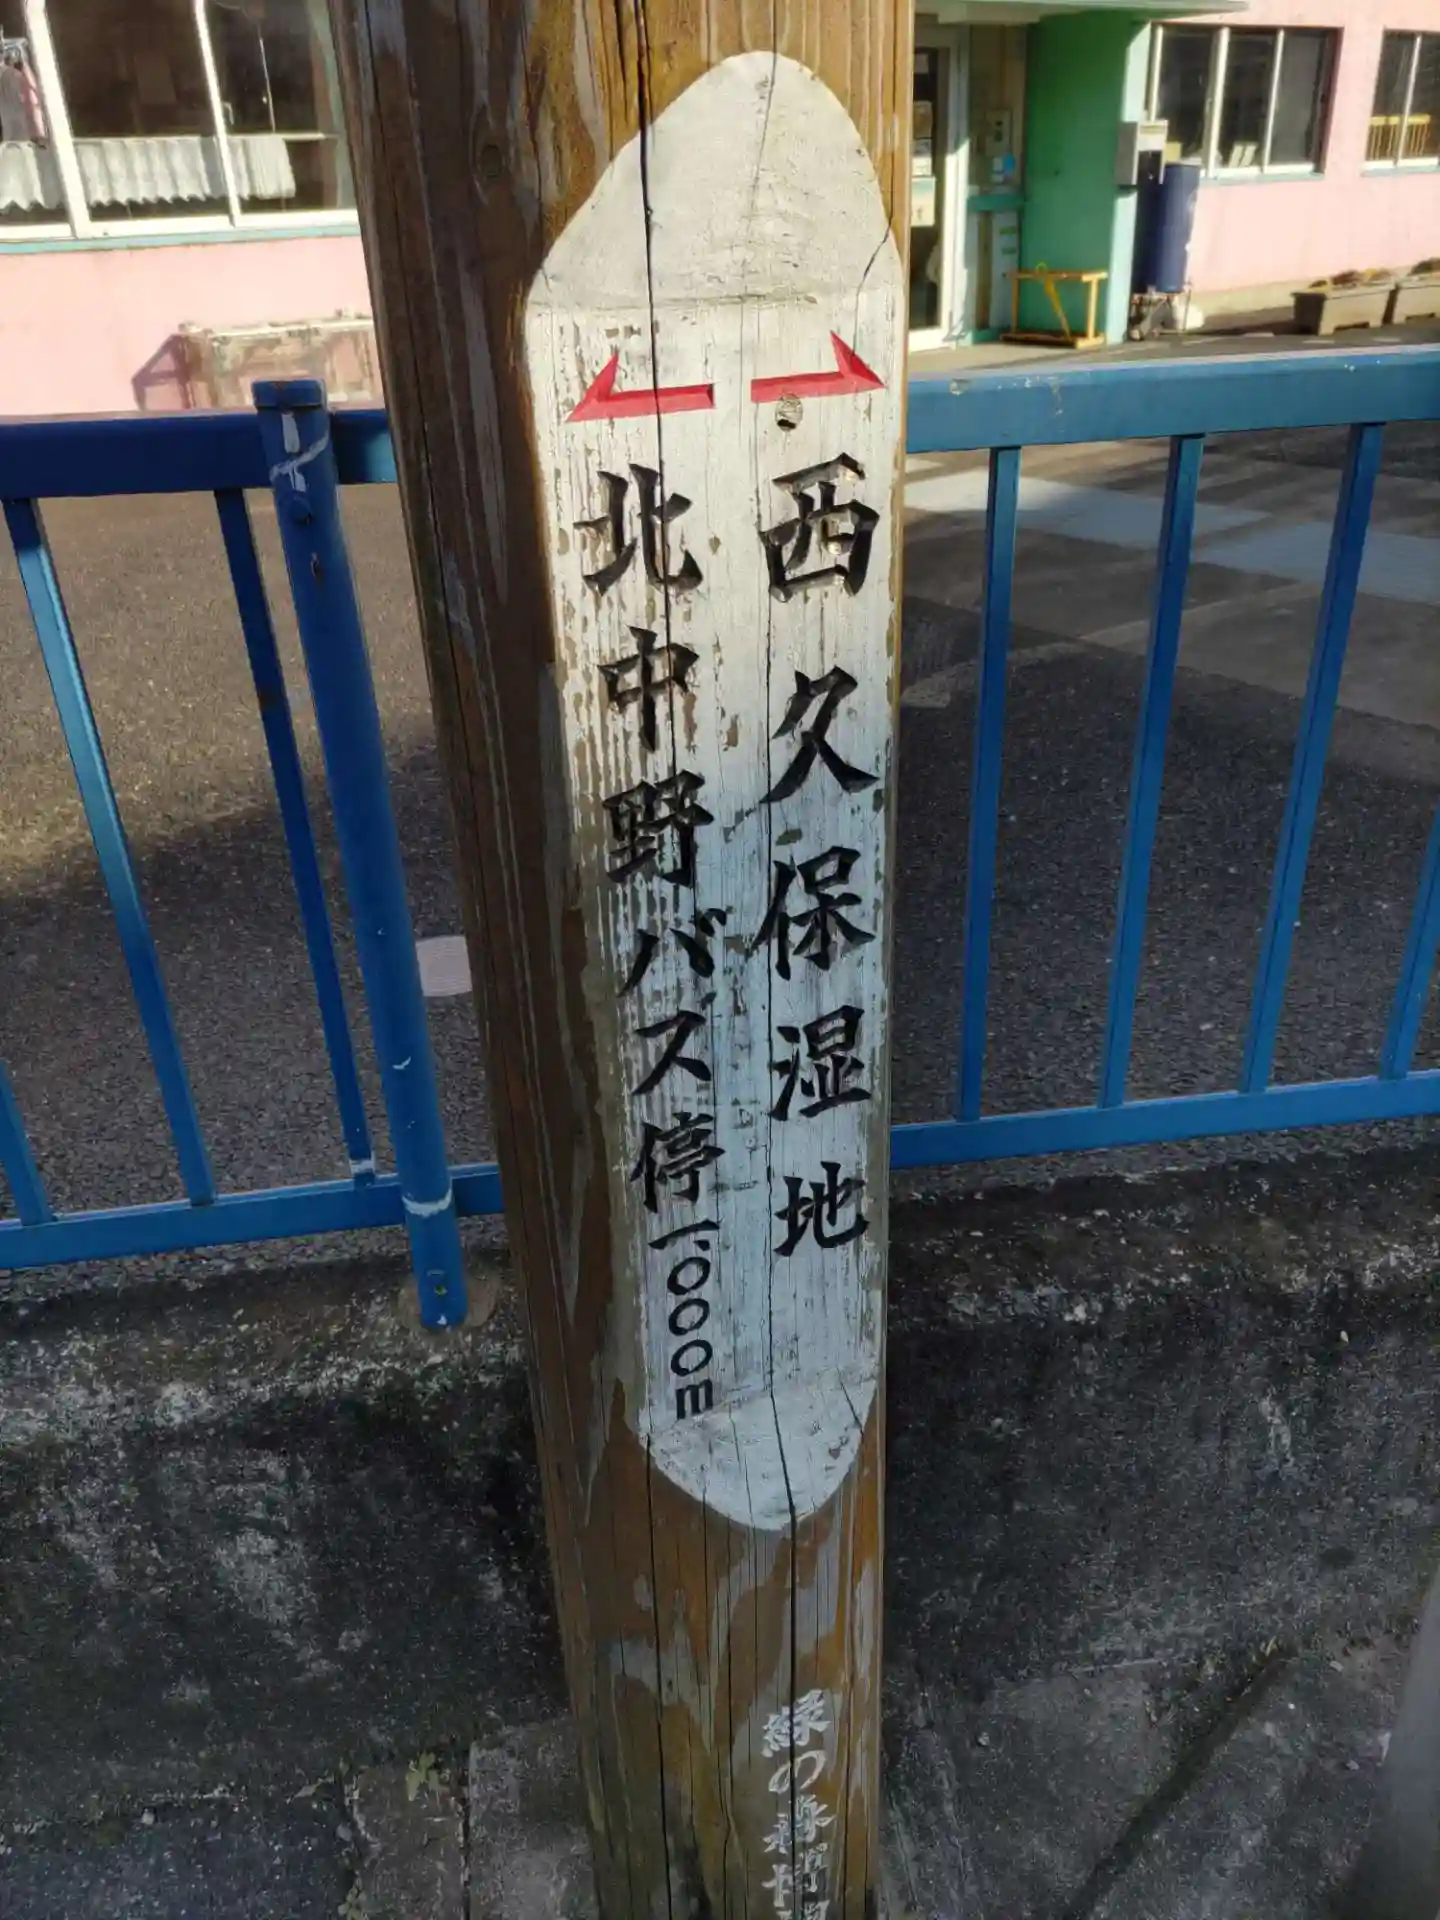 西久保湿地
北中野バス停 1,000m
緑の森博